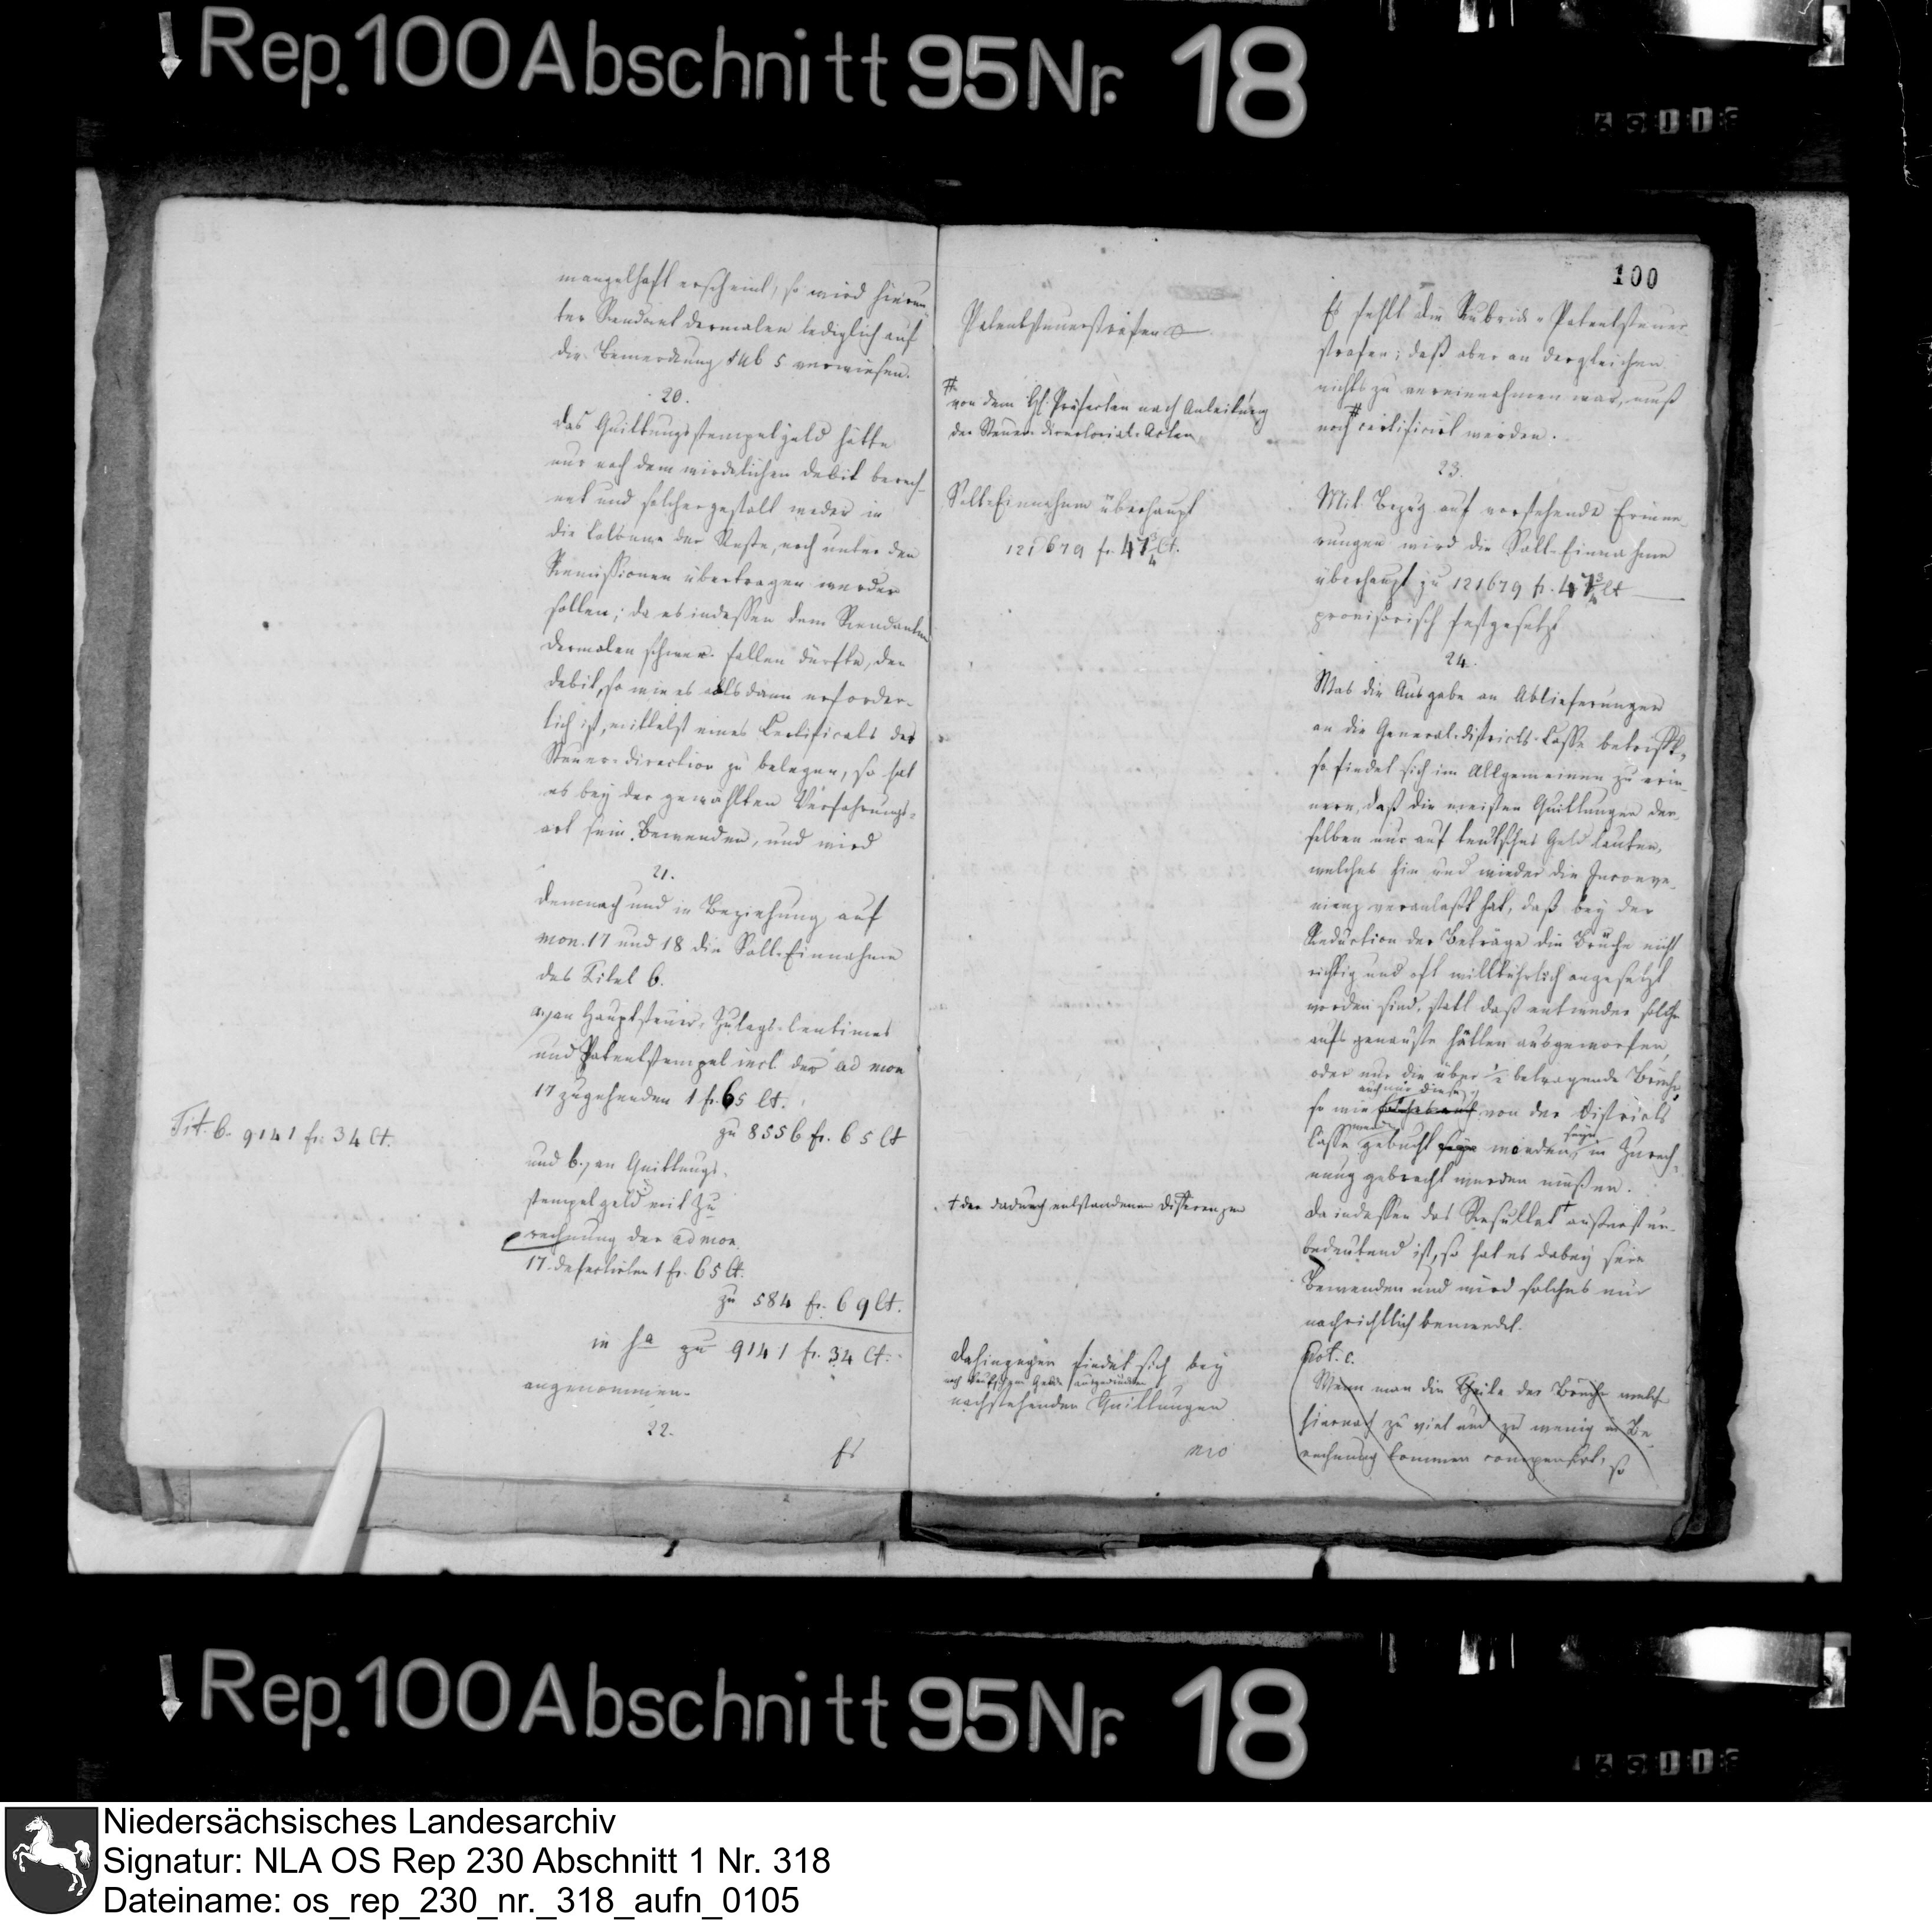 Rep. 100 Abschnitt 95 Nr. 18
mangelhaft erscheint, so wird hierun
ter Rendant dermalen lediglich auf
die Bemerkung sub 5 verwiesen.
20.
das Quittungsstempelgeld hätte
nur nach dem wirklichen Debit berech-
net und solchergestalt weder in
die Colonne der Reste, noch unter den
Remissionen übertragen werden
sollen; da es indessen dem Rendanten
dermalen schwer fallen dürfte, den
Debit, so wie es alsdann erforder-
lich ist, mittelst eines Certificats der
Steuer-Direction zu belegen, so hat
es bey der gewählten Verfahrungs-
art sein Bewenden, und wird
21.
demnach und in Beziehung auf
mon. 17 und 18 die Soll-Einnahme
des Titel 6.
a, an Hauptsteuer, Zulags-Centimes
und Patentstempel incl. der ad mon
17 zugehenden 1 fr. 65 Ct.
zu 8556 fr. 65 Ct
Tit. 6. 9141 fr. 34 Ct.
und b, an Quittungs-
stempelgeld mit Zu
rechnung der ad mon.
17. defectirten 1 fr. 65 Ct.
zu 584 fr. 69 Ct.
in Sa zu 9141 fr. 34 Ct.
angenommen.
22.
Es
100
Patentsteuerstrafen 0
Es fehlt die Rubrik "Patentsteuer-
strafen; daß aber an dergleichen
nichts zu vereinnahmen war, muß
noch # certificirt werden.
# von dem H. Präfecten nach Anleitung
der Steuer-Directorial-Acten
23.
Soll-Einnahme überhaupt
121679 fr. 47 3/4 Ct.
Mit Bezug auf vorstehende Erinne-
rungen wird die Soll-Einnahme
überhaupt zu 121679 fr. 47 3/4 Ct
provisorisch festgesetzt
24.
Was die Ausgabe an Ablieferungen
an die General-Districts-Casse betrifft,
so findet sich im Allgemeinen zu erin-
nern, daß die meisten Quittungen der-
selben nur auf teutsches Geld lauten,
welches hin und wieder die Inconve-
nienz veranlaßt hat, daß bey der
Reduction der Beträge die Brüche nicht
richtig und oft willkührlich angesetzt
worden sind, statt daß entweder solche
aufs genauste hätten ausgeworfen,
oder nur die über 1/2 betragende Brüche
auch nur diese
so wie von der Districts
Casse gebucht worden seyn, in Zurech-
nung gebracht werden müßen.
Da indessen das Resultat + äußerst un-
bedeutend ist, so hat es dabey sein
Bewenden und wird solches nur
nachrichtlich bemerkt.
+ der dadurch entstandenen Differenzen
Not. c.
Wenn man die Theile der Brüche welche
hiernach zu viel und zu wenig in Be-
rechnung kommen compensirt, so
dahingegen findet sich bey
nach teutschem Gelde
nachstehenden Quittungen
Rep. 100 Abschnitt 95 Nr. 18
Niedersächsisches Landesarchiv
Signatur: NLA OS Rep 230 Abschnitt 1 Nr. 318
Dateiname: os_rep_230_nr._318_aufn_0105